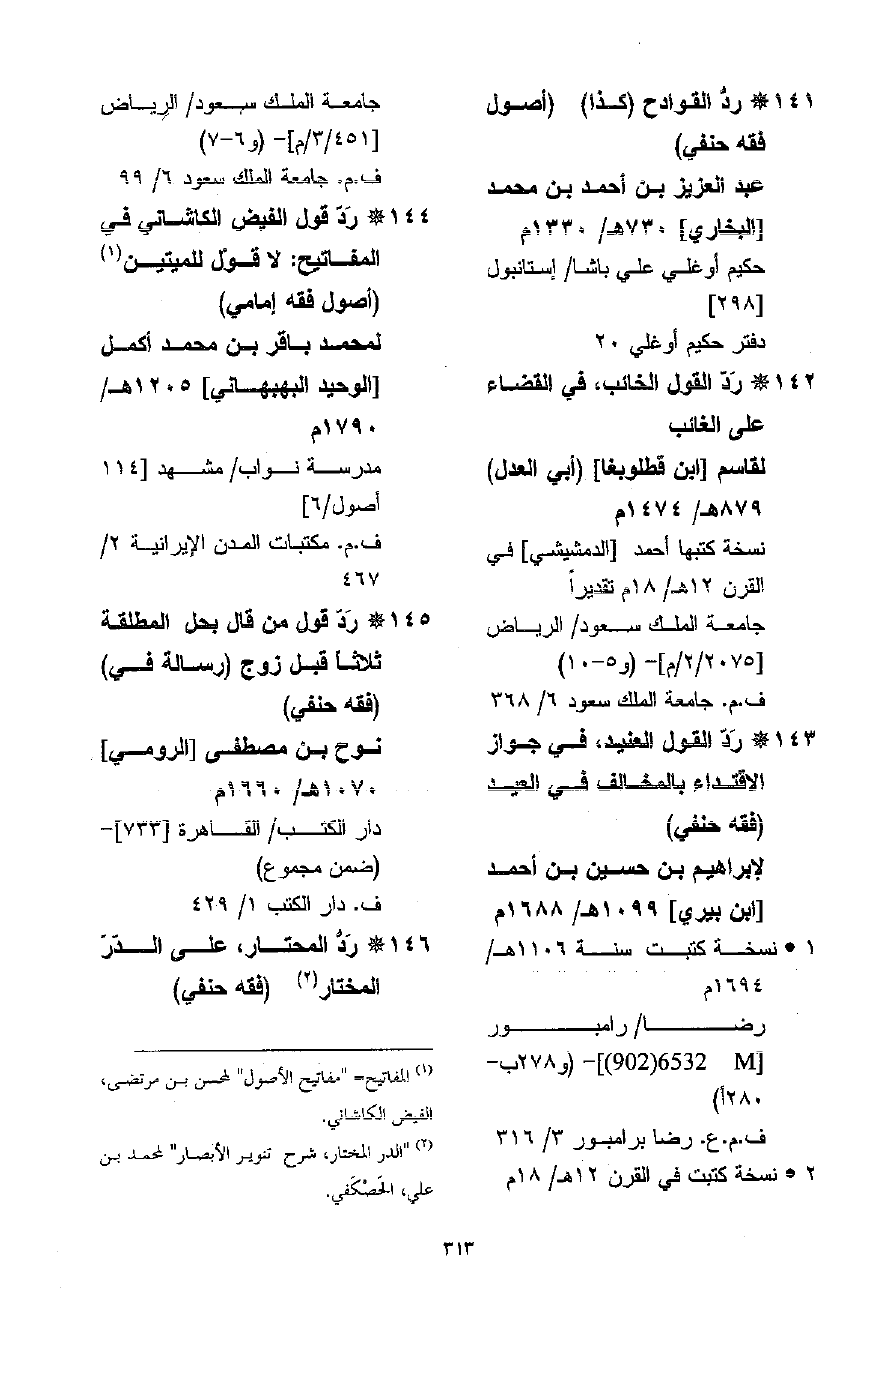 ١٤١ * ردُّ القوادح (كذا) (أصول
فقه حنفي)
عبد العزيز بن أحمد بن محمد
[البخاري] ٧٣٠هـ/ ١٣٣٠م
حكيم أوغلي علي باشا/ إستانبول
[٢٩٨]
دفتر حكيم أوغلي ٢٠
١٤٢ * رَدّ القول الخائب، في القضاء
على الغائب
لقاسم [ابن قطلوبغا] (أبي العدل)
٨٧٩هـ/ ١٤٧٤م
نسخة كتبها أحمد [الدمشيشي] في
القرن ١٢هـ/ ١٨م تقديراً
جامعة الملك سعود/ الرياض
[٢/٢٠٧٥/م]- (و٥-١٠)
ف.م. جامعة الملك سعود ٦/ ٣٦٨
١٤٣ * رَدّ القول العنيد، في جواز
الاقتداء بالمخالف في العيد
(فقه حنفي)
لإبراهيم بن حسين بن أحمد
[ابن بيري] ١٠٩٩هـ/ ١٦٨٨م
١ • نسخة كتبت سنة ١١٠٦هـ/
١٦٩٤م
رضا/ رامبور
[M 6532(902)]- (و٢٧٨ب-
٢٨٠أ)
ف.م.ع. رضا برامبور ٣/ ٣١٦
٢ • نسخة كتبت في القرن ١٢هـ/ ١٨م
جامعة الملك سعود/ الرياض
[٣/٤٥١/م]- (و٦-٧)
ف.م. جامعة الملك سعود ٦/ ٩٩
١٤٤ * رَدّ قول الفيض الكاشاني في
المفاتيح: لا قولَ للميتين(١)
(أصول فقه إمامي)
لمحمد باقر بن محمد أكمل
[الوحيد البهبهاني] ١٢٠٥هـ/
١٧٩٠م
مدرسة نواب/ مشهد [١١٤
أصول/٦]
ف.م. مكتبات المدن الإيرانية ٢/
٤٦٧
١٤٥ * رَدّ قول من قال بحل المطلقة
ثلاثاً قبل زوج (رسالة في)
(فقه حنفي)
نوح بن مصطفى [الرومي]
١٠٧٠هـ/ ١٦٦٠م
دار الكتب/ القاهرة [٧٣٣]-
(ضمن مجموع)
ف. دار الكتب ١/ ٤٢٩
١٤٦ * ردُّ المحتار، على الدّرّ
المختار(٢) (فقه حنفي)
(١) المفاتيح= "مفاتيح الأصول" لمحسن بن مرتضى،
الفيض الكاشاني.
(٢) "الدر المختار، شرح تنوير الأبصار" لمحمد بن
علي، الحَصْكَفي.
٣١٣